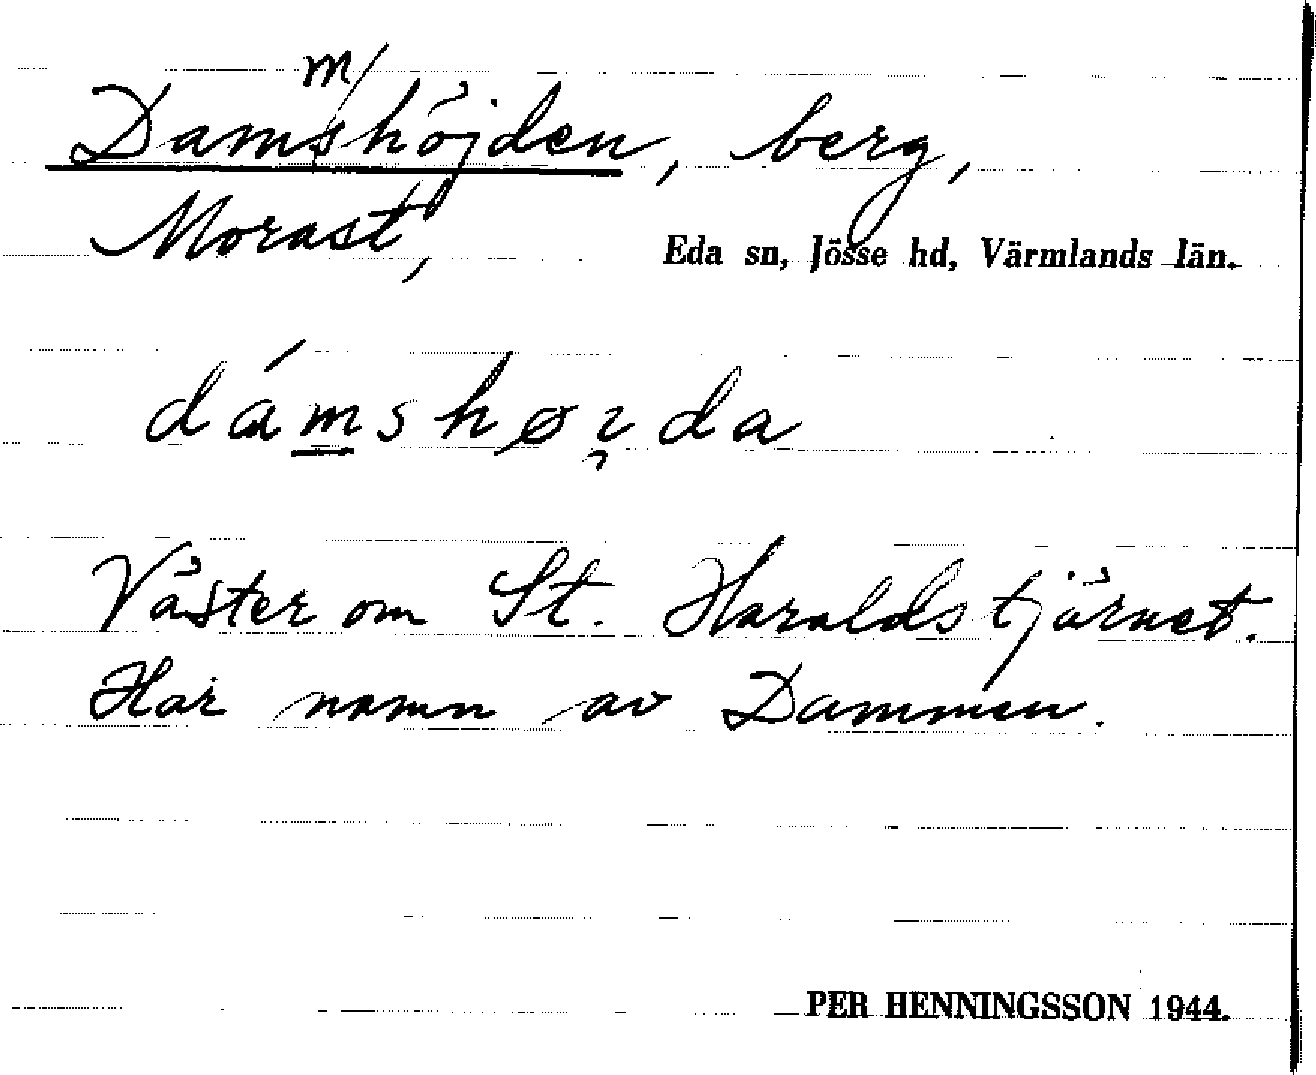 m/
Damshöjden, berg,
Morast,
Eda sn, Jösse hd, Värmlands län.
dámshøꞔda
Väster om St. Haraldstjärnet.
Har namn av Dammen.
PER HENNINGSSON 1944.